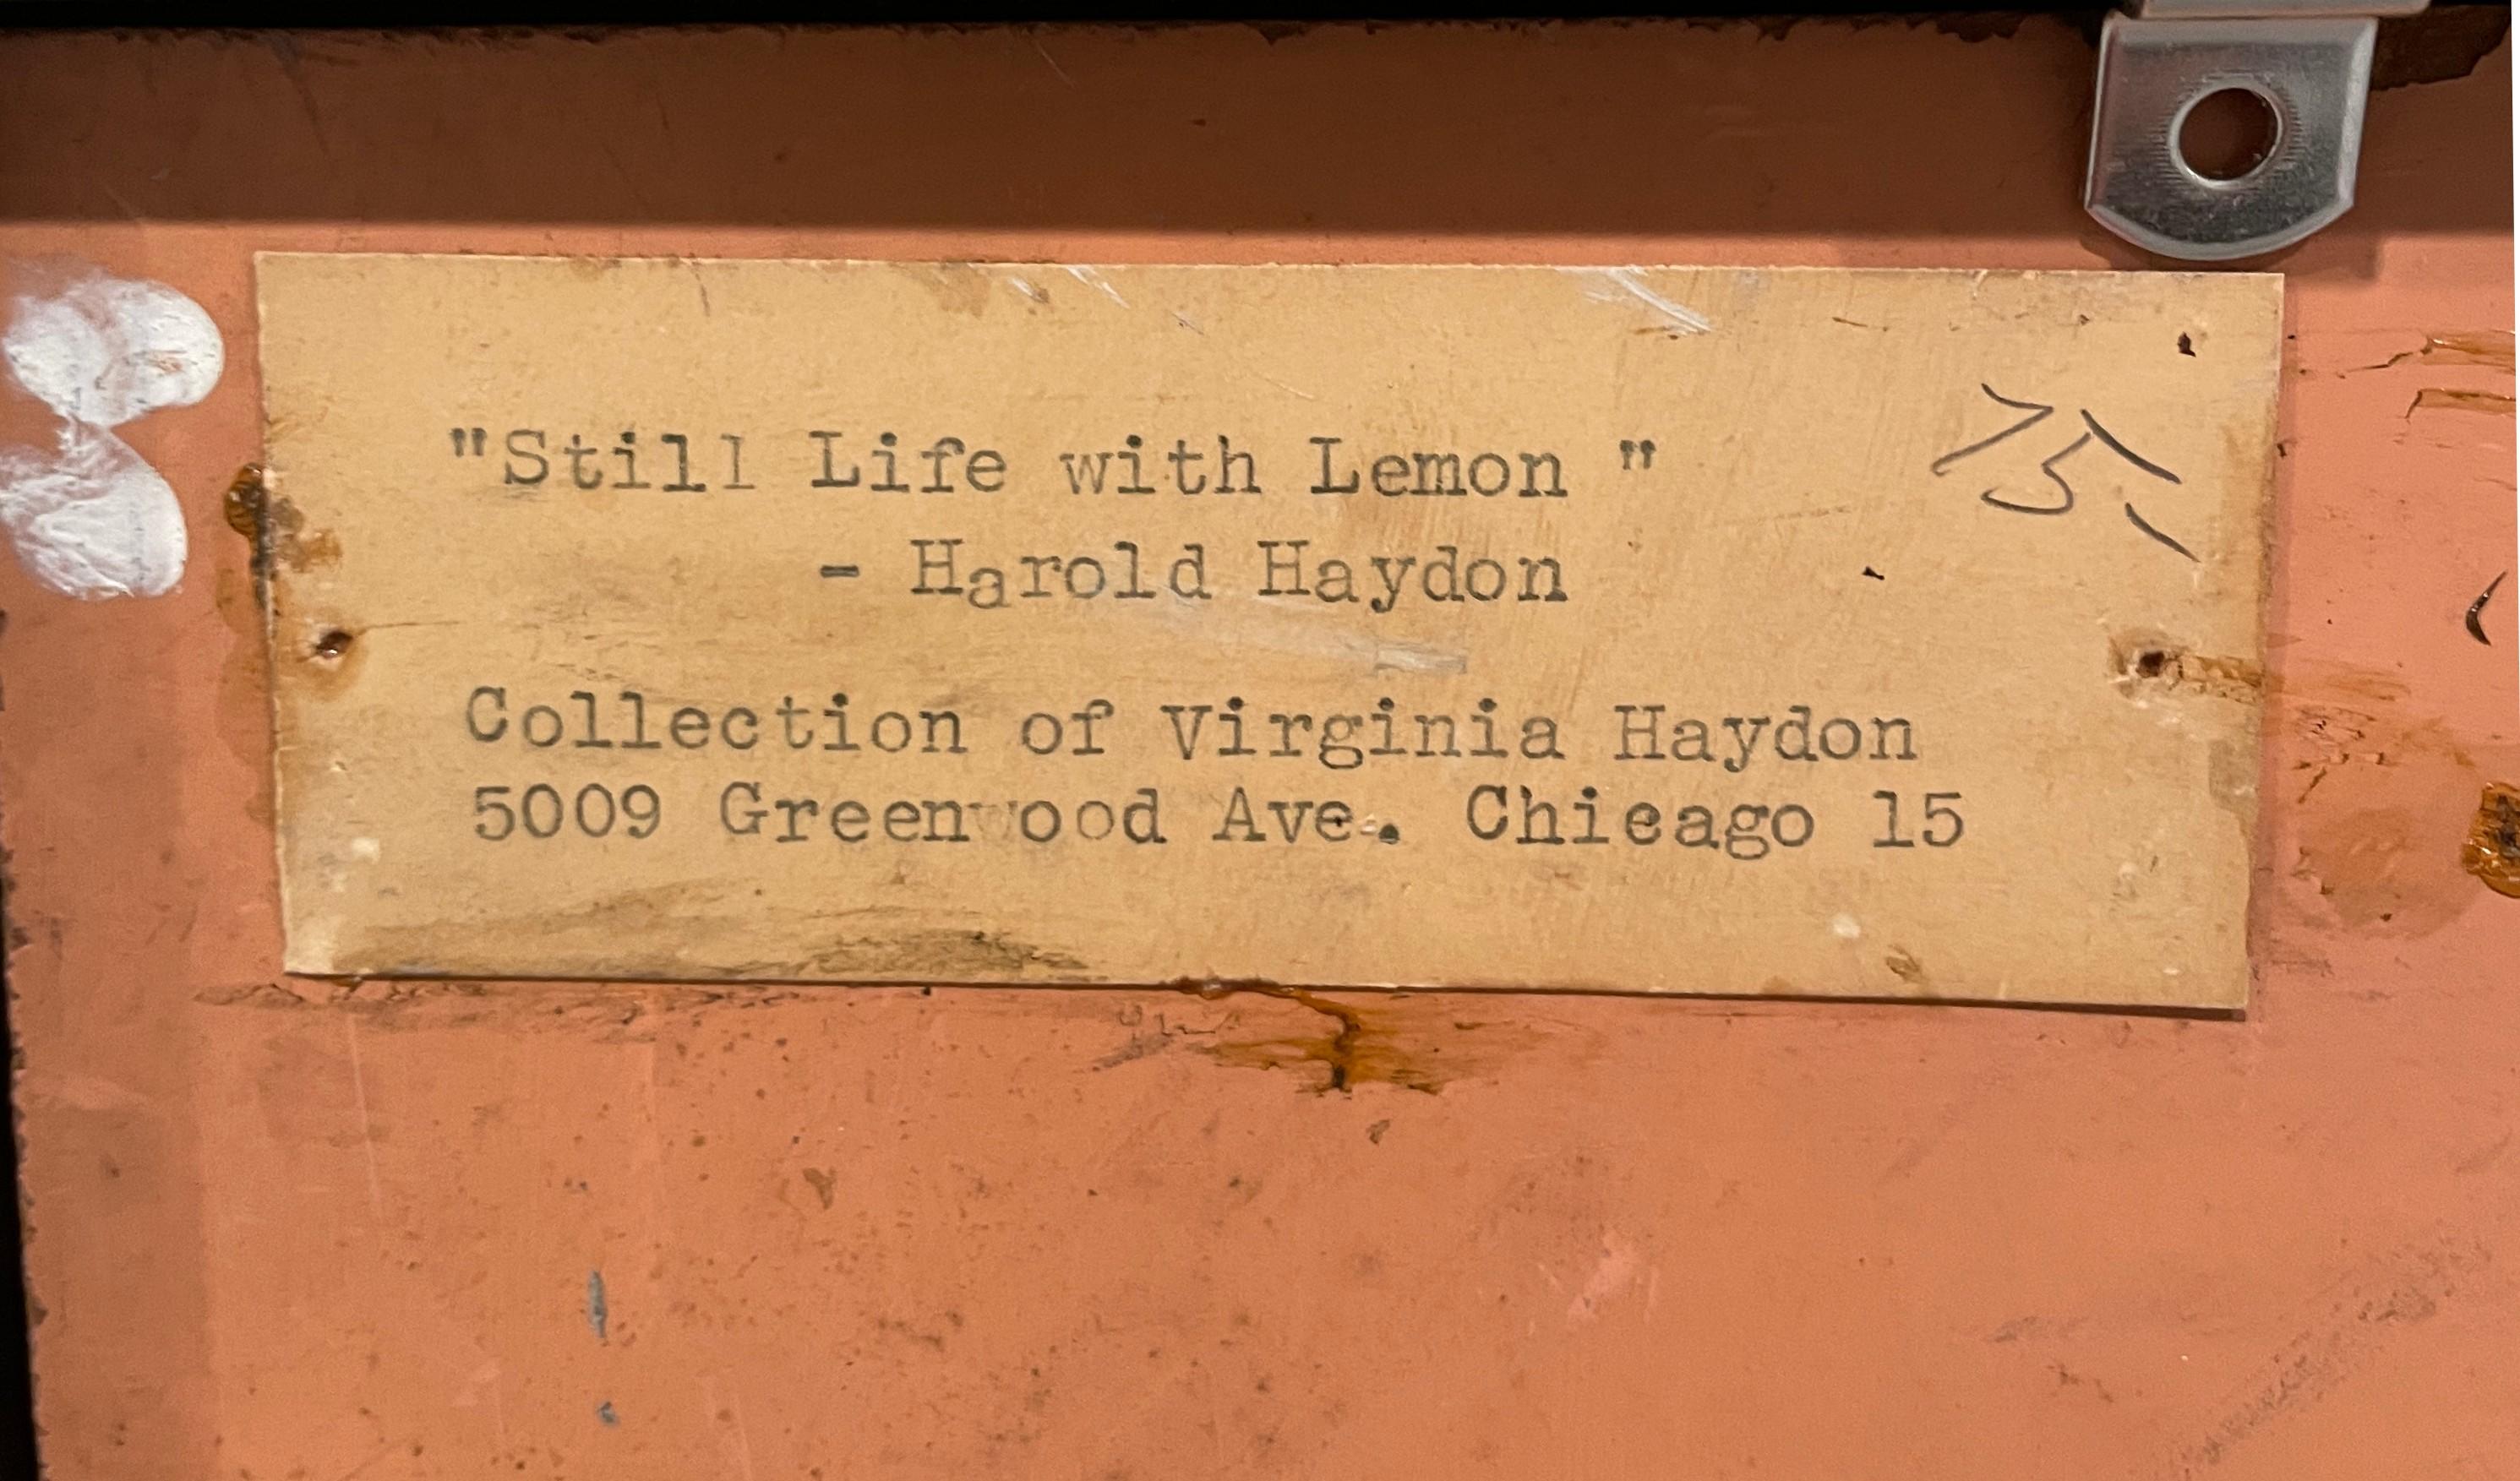 "Still Life with Lemon "
75
- Harold Haydon
Collection of Virginia Haydon
5009 Greenwood Ave. Chicago 15